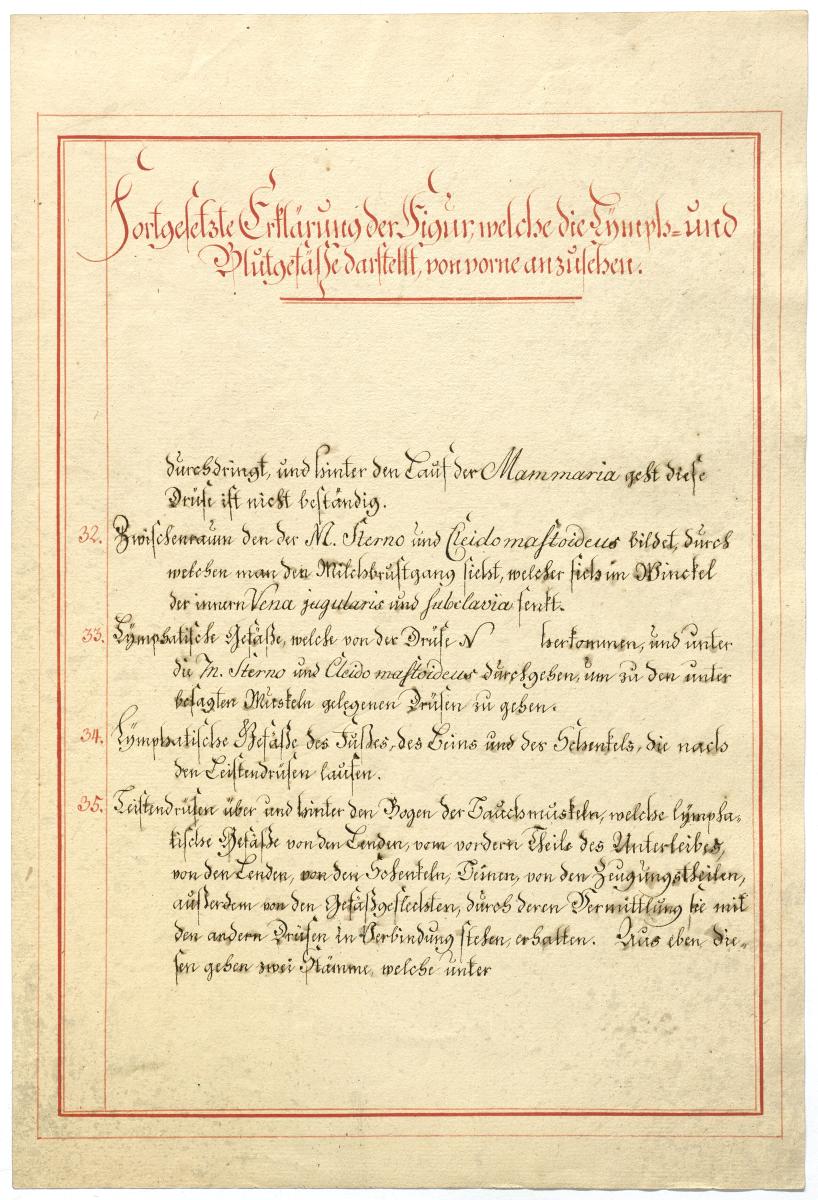 Fortgesetzte Erklärung der Figur, welche die Lÿmph- und
Blutgefäße darstellt, von vorne anzusehen.
durchdringt, und hinter den Lauf der Mammaria geht diese
Drüse ist nicht beständig.
32. Zwischenraum den der M. Sterno und Cleidomastoideus bildet, durch
welchen man den Milchbrustgang sieht, welcher sich im Winckel
der innern Vena jugularis und subclavia senkt.
33. Lÿmphatische Gefäße, welche von der Drüse N herkommen, und unter
die M. Sterno und Cleidomastoideus durchgehen, um zu den unter
besagten Muskeln gelegenen Drüsen zu gehen.
34. Lÿmphatische Gefäße des Fußes, des Beins und des Schenkels, die nach
den Leistendrüsen laufen.
35. Leistendrüsen über und hinter den Bogen der Bauchmuskeln, welche lÿmpha-
tische Gefäße von den Lenden, vom vordern Theile des Unterleibes,
von den Lenden, von den Schenkeln, Beinen, von den Zeugungstheilen,
außerdem von den Gefäßgeflechten, durch deren Vermittlung sie mit
den andern Drüsen in Verbindung stehen, erhalten. Aus eben die-
sen gehen zwei Stämme, welche unter